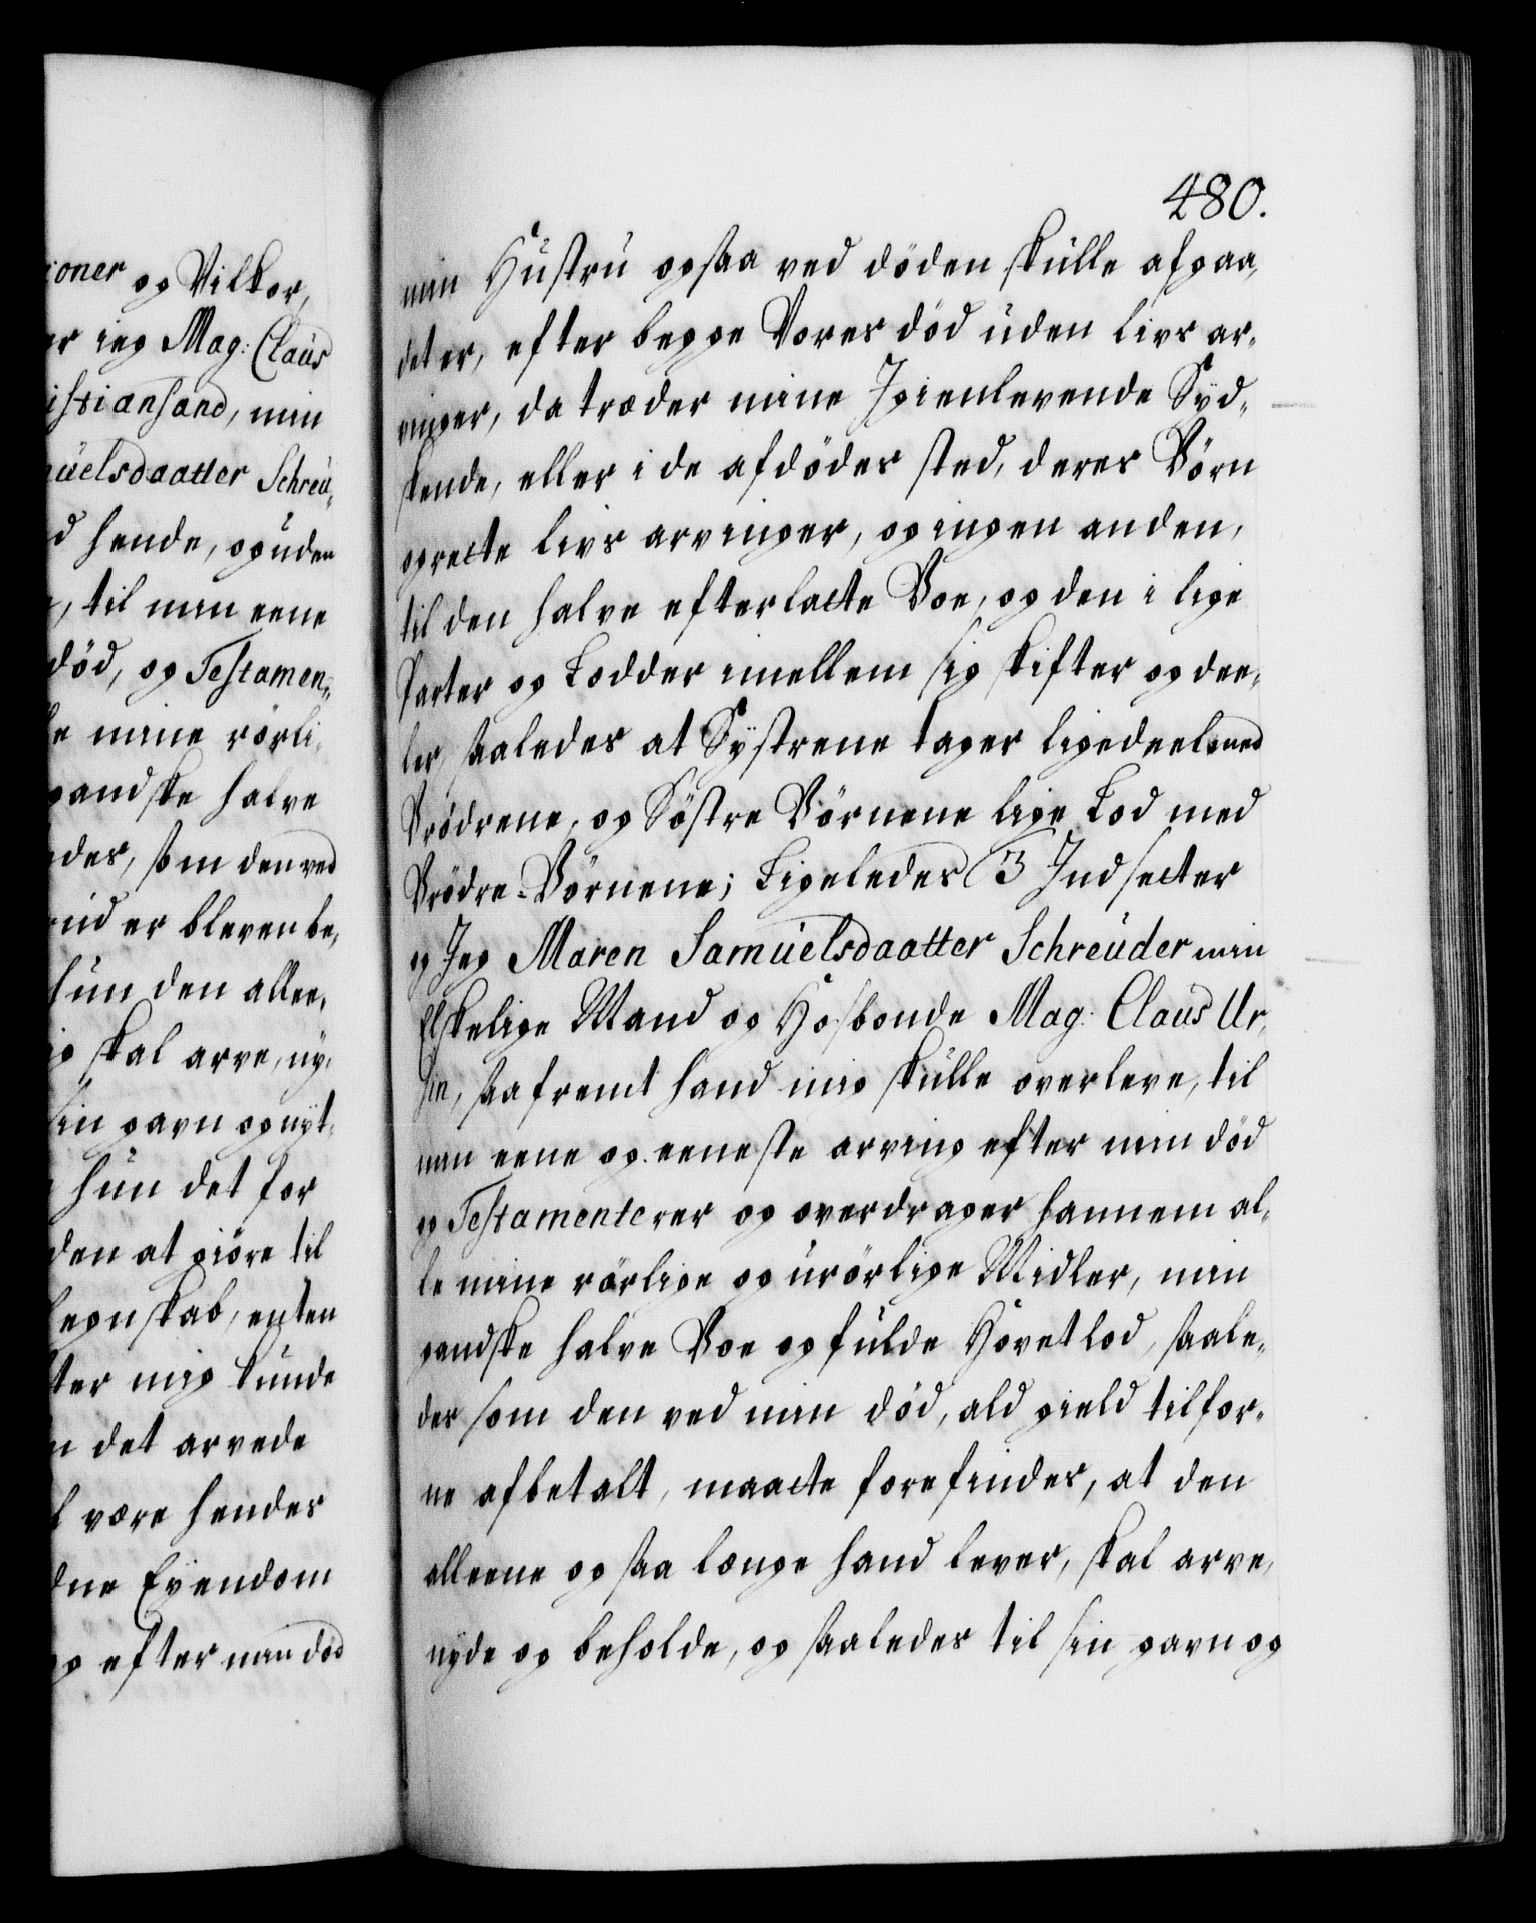 ioner og Vilkor,
er ieg Mag: Claus
istiansand, min
uelsdaatter Schreu-
d hende, og uden
, til min eene
død, og Testamen-
le mine rørli-
gandske halve
edes, som den ved
er bleven be,
hun den allee,
skal arve, ny,
sin gavn og nyt-
hun det for
den at giøre til
egnskab, enten
ter mig kunde
det arvede
være hendes
dne Eyendom
og efter min död
480.
min Hustru ogsaa ved döden skulle afgaa,
det er, efter begge Vores död uden livs ar-
vinger, da træder mine Igienlevende Syd-
skende, eller i de afdödes sted, deres Börn
og rette livs arvinger, og ingen anden,
til den halve efterlatte Boe, og den i lige
Parter og Lodder imellem sig skifter og dee-
ler, saaledes at Systrene tager lige deel med
Brödrene, og Söstre Börnene lige Lod med
Brödre-Börnene; Ligeledes 3 Indsetter
og Jeg Maren Samuelsdaatter Schreuder min
Elskelige Mand og Hosbonde Mag: Claus Ur-
sin, saafremt hand mig skulle overleve, til
min eene og eeneste arving efter min död
og Testamenterer og overdrager hannem al-
le mine rörlige og urörlige Midler, min
gandske halve Boe og fulde Hovetlod, saale-
des som den ved min död, ald gield tilfor-
ne afbetalt, maatte forefindes, at den
alleene og saa længe hand lever, skal arve,
nyde og beholde, og saaledes til sin gavn og